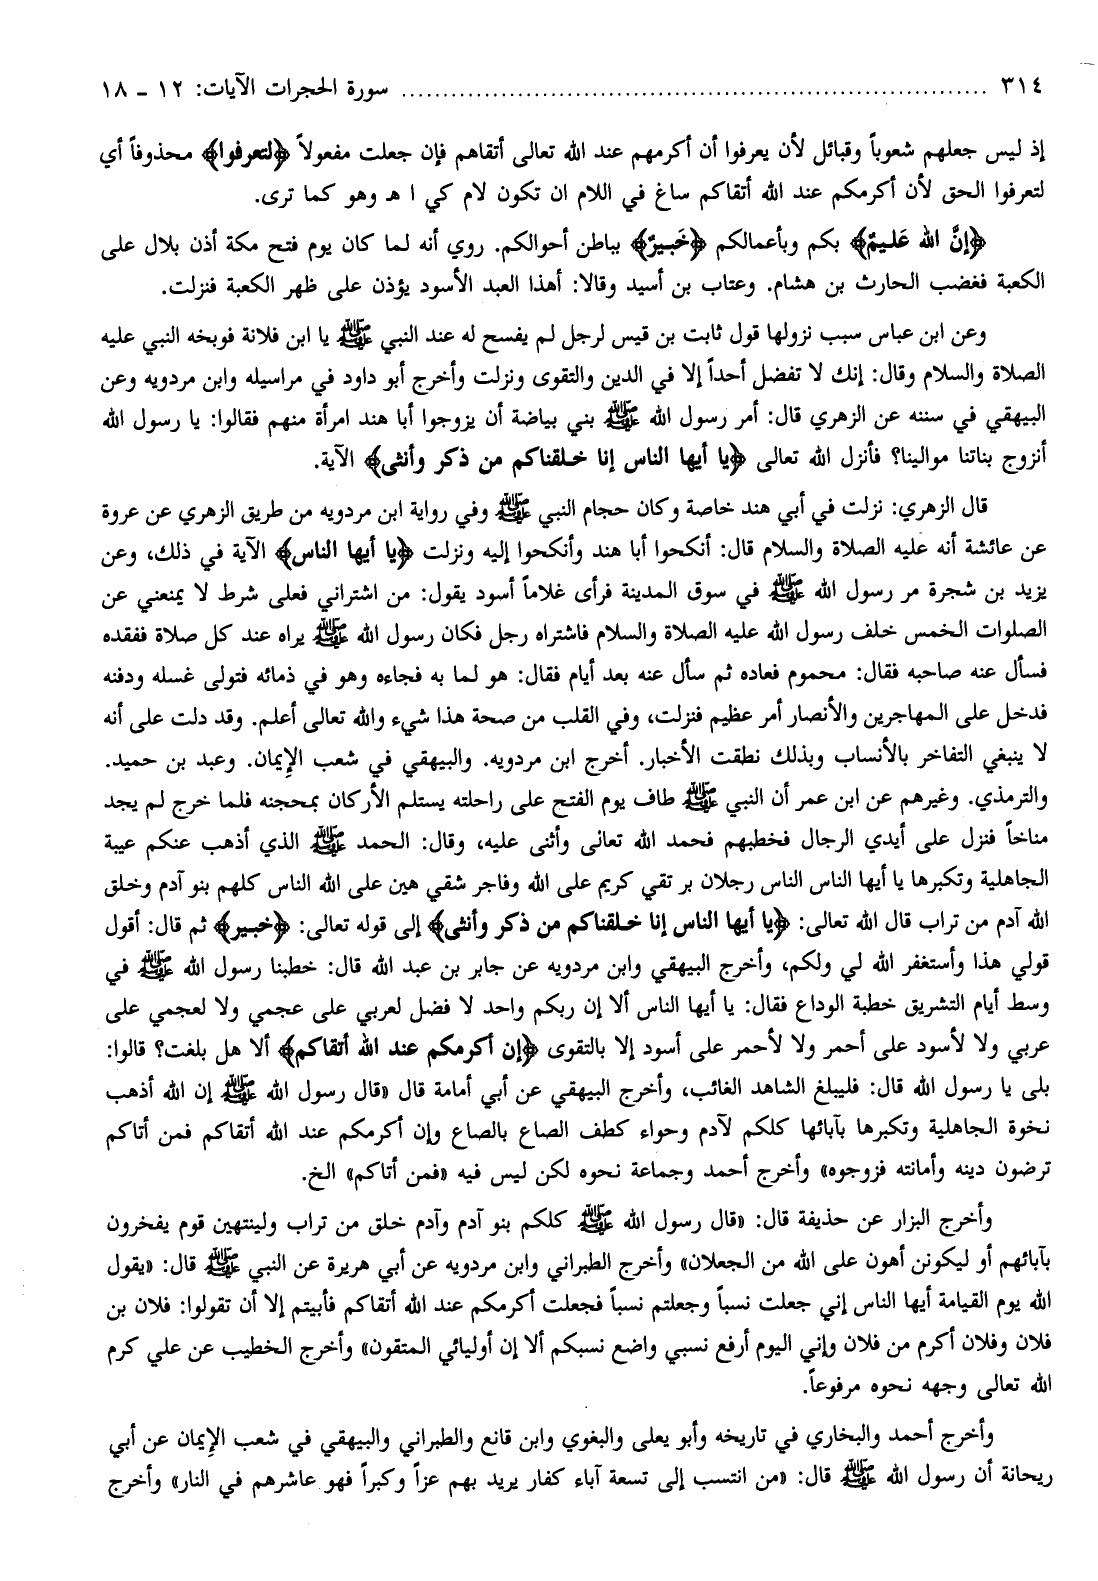 ٣١٤ ........ سورة الحجرات الآيات: ١٢ ـ ١٨
إذ ليس جعلهم شعوباً وقبائل لأن يعرفوا أن أكرمهم عند الله تعالى أتقاهم فإن جعلت مفعولاً ﴿لتعرفوا﴾ محذوفاً أي
لتعرفوا الحق لأن أكرمكم عند الله أتقاكم ساغ في اللام ان تكون لام كي ا هـ وهو كما ترى.
﴿إنَّ الله عَليمٌ﴾ بكم وبأعمالكم ﴿خَبيرٌ﴾ بباطن أحوالكم. روي أنه لما كان يوم فتح مكة أذن بلال على
الكعبة فغضب الحارث بن هشام. وعتاب بن أسيد وقالا: أهذا العبد الأسود يؤذن على ظهر الكعبة فنزلت.
وعن ابن عباس سبب نزولها قول ثابت بن قيس لرجل لم يفسح له عند النبي ﷺ يا ابن فلانة فوبخه النبي عليه
الصلاة والسلام وقال: إنك لا تفضل أحداً إلا في الدين والتقوى ونزلت وأخرج أبو داود في مراسيله وابن مردويه وعن
البيهقي في سننه عن الزهري قال: أمر رسول الله ﷺ بني بياضة أن يزوجوا أبا هند امرأة منهم فقالوا: يا رسول الله
أنزوج بناتنا موالينا؟ فأنزل الله تعالى ﴿يا أيها الناس إنا خلقناكم من ذكر وأنثى﴾ الآية.
قال الزهري: نزلت في أبي هند خاصة وكان حجام النبي ﷺ وفي رواية ابن مردويه من طريق الزهري عن عروة
عن عائشة أنه عليه الصلاة والسلام قال: أنكحوا أبا هند وأنكحوا إليه ونزلت ﴿يا أيها الناس﴾ الآية في ذلك، وعن
يزيد بن شجرة مر رسول الله ﷺ في سوق المدينة فرأى غلاماً أسود يقول: من اشتراني فعلى شرط لا يمنعني عن
الصلوات الخمس خلف رسول الله عليه الصلاة والسلام فاشتراه رجل فكان رسول الله ﷺ يراه عند كل صلاة ففقده
فسأل عنه صاحبه فقال: محموم فعاده ثم سأل عنه بعد أيام فقال: هو لما به فجاءه وهو في ذمائه فتولى غسله ودفنه
فدخل على المهاجرين والأنصار أمر عظيم فنزلت، وفي القلب من صحة هذا شيء والله تعالى أعلم. وقد دلت على أنه
لا ينبغي التفاخر بالأنساب وبذلك نطقت الأخبار. أخرج ابن مردويه. والبيهقي في شعب الإيمان. وعبد بن حميد.
والترمذي. وغيرهم عن ابن عمر أن النبي ﷺ طاف يوم الفتح على راحلته يستلم الأركان بمحجنه فلما خرج لم يجد
مناخاً فنزل على أيدي الرجال فخطبهم فحمد الله تعالى وأثنى عليه، وقال: الحمد ﷺ الذي أذهب عنكم عيبة
الجاهلية وتكبرها يا أيها الناس الناس رجلان بر تقي كريم على الله وفاجر شقي هين على الله الناس كلهم بنو آدم وخلق
الله آدم من تراب قال الله تعالى: ﴿يا أيها الناس إنا خلقناكم من ذكر وأنثى﴾ إلى قوله تعالى: ﴿خبير﴾ ثم قال: أقول
قولي هذا وأستغفر الله لي ولكم، وأخرج البيهقي وابن مردويه عن جابر بن عبد الله قال: خطبنا رسول الله ﷺ في
وسط أيام التشريق خطبة الوداع فقال: يا أيها الناس ألا إن ربكم واحد لا فضل لعربي على عجمي ولا لعجمي على
عربي ولا لأسود على أحمر ولا لأحمر على أسود إلا بالتقوى ﴿إن أكرمكم عند الله أتقاكم﴾ ألا هل بلغت؟ قالوا:
بلى يا رسول الله قال: فليبلغ الشاهد الغائب، وأخرج البيهقي عن أبي أمامة قال «قال رسول الله ﷺ إن الله أذهب
نخوة الجاهلية وتكبرها بآبائها كلكم لآدم وحواء كطف الصاع بالصاع وإن أكرمكم عند الله أتقاكم فمن أتاكم
ترضون دينه وأمانته فزوجوه» وأخرج أحمد وجماعة نحوه لكن ليس فيه «فمن أتاكم» الخ.
وأخرج البزار عن حذيفة قال: «قال رسول الله ﷺ كلكم بنو آدم وآدم خلق من تراب ولينتهين قوم يفخرون
بآبائهم أو ليكونن أهون على الله من الجعلان» وأخرج الطبراني وابن مردويه عن أبي هريرة عن النبي ﷺ قال: «يقول
الله يوم القيامة أيها الناس إني جعلت نسباً وجعلتم نسباً فجعلت أكرمكم عند الله أتقاكم فأبيتم إلا أن تقولوا: فلان بن
فلان وفلان أكرم من فلان وإني اليوم أرفع نسبي واضع نسبكم ألا إن أوليائي المتقون» وأخرج الخطيب عن علي كرم
الله تعالى وجهه نحوه مرفوعاً.
وأخرج أحمد والبخاري في تاريخه وأبو يعلى والبغوي وابن قانع والطبراني والبيهقي في شعب الإيمان عن أبي
ريحانة أن رسول الله ﷺ قال: «من انتسب إلى تسعة آباء كفار يريد بهم عزاً وكبراً فهو عاشرهم في النار» وأخرج